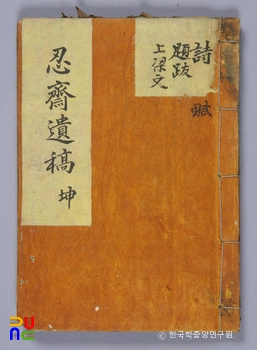 忍齋遺稿 坤
詩
賦
題跋
上梁文
PUNG
© 한국학중앙연구원